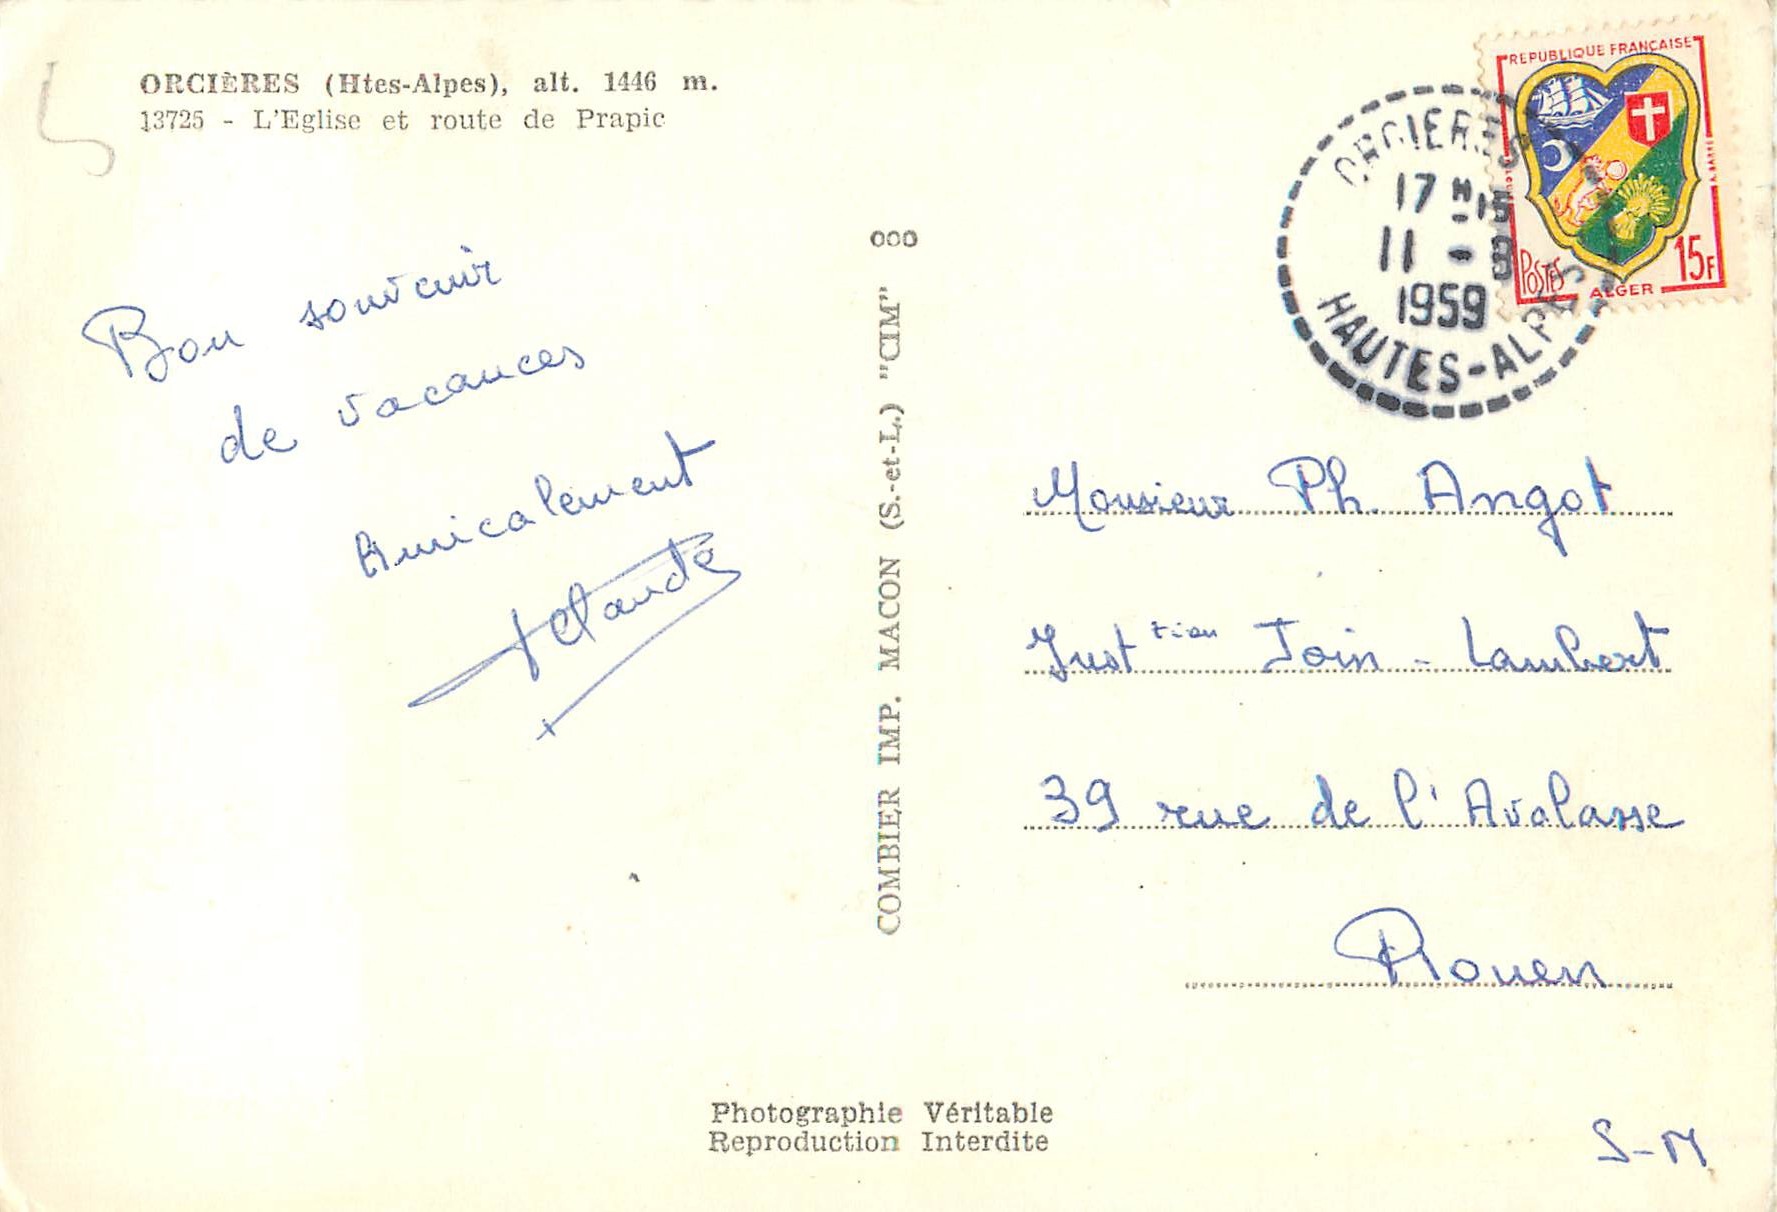 ORCIÈRES (Htes-Alpes), alt. 1446 m.
13725 - L'Eglise et route de Prapic
Bon souvenir
de vacances
Amicalement
Claude
COMBIER IMP. MACON (S.-et-L.) "CIM" ooo
REPUBLIQUE FRANÇAISE
POSTES
ALGER
15F
ORCIERES
17 H -15
11 - 9
1959
HAUTES-ALPES
Monsieur Ph. Angot
Insttion Join-Lambert
39 rue de l'Avalasse
Rouen
Photographie Véritable
Reproduction Interdite
S-M